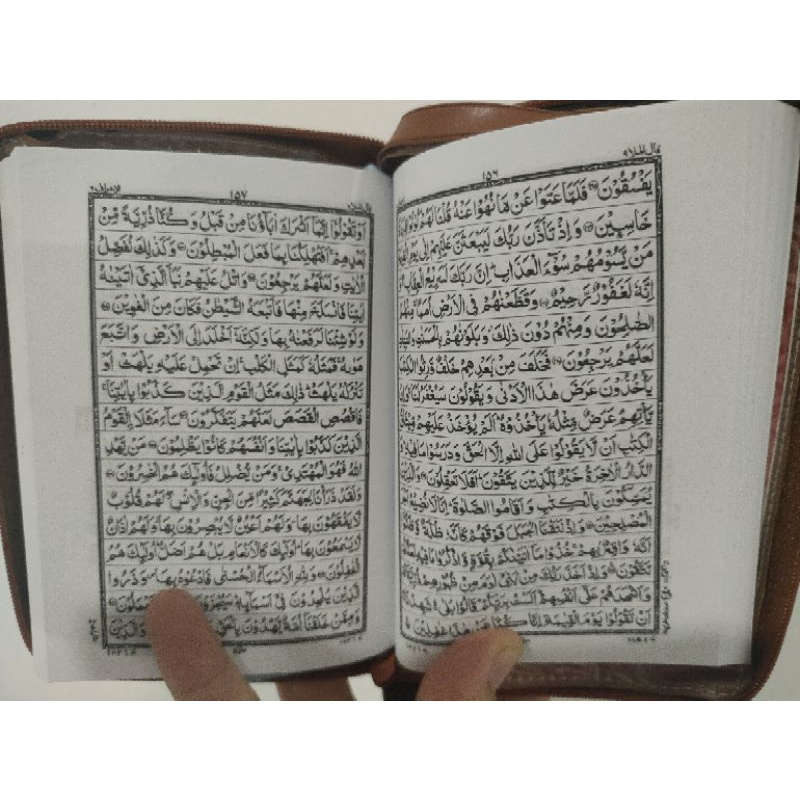 قال الملا ٩
١٥٦
يَفْسُقُوْنَ فَلَمَّا عَتَوْا عَنْ مَّا نُهُوْا عَنْهُ قُلْنَا لَهُمْ كُوْنُوْا
خَاسِـِٕيْنَ وَاِذْ تَاَذَّنَ رَبُّكَ لَيَبْعَثَنَّ عَلَيْهِمْ اِلٰى يَوْمِ
مَنْ يَّسُوْمُهُمْ سُوْٓءَ الْعَذَابِ اِنَّ رَبَّكَ لَسَرِيْعُ الْعِقَابِ
اِنَّهٗ لَغَفُوْرٌ رَّحِيْمٌ وَقَطَّعْنٰهُمْ فِى الْاَرْضِ اُمَمًا مِنْهُمُ
الصّٰلِحُوْنَ وَمِنْهُمْ دُوْنَ ذٰلِكَ وَبَلَوْنٰهُمْ بِالْحَسَنٰتِ
لَعَلَّهُمْ يَرْجِعُوْنَ فَخَلَفَ مِنْ بَعْدِهِمْ خَلْفٌ وَّرِثُوا
يَاْخُذُوْنَ عَرَضَ هٰذَا الْاَدْنٰى وَيَقُوْلُوْنَ سَيُغْفَرُ لَنَا
يَّاْتِهِمْ عَرَضٌ مِّثْلُهٗ يَاْخُذُوْهُ اَلَمْ يُؤْخَذْ عَلَيْهِمْ
الْكِتٰبِ اَنْ لَّا يَقُوْلُوْا عَلَى اللّٰهِ اِلَّا الْحَقَّ وَدَرَسُوْا مَا فِيْهِ
الدَّارُ الْاٰخِرَةُ خَيْرٌ لِّلَّذِيْنَ يَتَّقُوْنَ اَفَلَا تَعْقِلُوْنَ
يُمَسِّكُوْنَ بِالْكِتٰبِ وَاَقَامُوا الصَّلٰوةَ اِنَّا لَا نُضِيْعُ
الْمُصْلِحِيْنَ وَاِذْ نَتَقْنَا الْجَبَلَ فَوْقَهُمْ كَاَنَّهٗ ظُلَّةٌ
اَنَّهٗ وَاقِعٌ بِهِمْ خُذُوْا مَآ اٰتَيْنٰكُمْ بِقُوَّةٍ وَّاذْكُرُوْا مَا فِيْهِ
تَتَّقُوْنَ وَاِذْ اَخَذَ رَبُّكَ مِنْ بَنِىْٓ اٰدَمَ مِنْ ظُهُوْرِهِمْ
وَاَشْهَدَهُمْ عَلٰٓى اَنْفُسِهِمْ اَلَسْتُ بِرَبِّكُمْ قَالُوْا بَلٰى شَهِدْنَا
اَنْ تَقُوْلُوْا يَوْمَ الْقِيٰمَةِ اِنَّا كُنَّا عَنْ هٰذَا غٰفِلِيْنَ
١٥٧
اَوْ تَقُوْلُوْٓا اِنَّمَآ اَشْرَكَ اٰبَآؤُنَا مِنْ قَبْلُ وَكُنَّا ذُرِّيَّةً مِّنْ
بَعْدِهِمْ اَفَتُهْلِكُنَا بِمَا فَعَلَ الْمُبْطِلُوْنَ وَكَذٰلِكَ نُفَصِّلُ
الْاٰيٰتِ وَلَعَلَّهُمْ يَرْجِعُوْنَ وَاتْلُ عَلَيْهِمْ نَبَاَ الَّذِىْٓ اٰتَيْنٰهُ
اٰيٰتِنَا فَانْسَلَخَ مِنْهَا فَاَتْبَعَهُ الشَّيْطٰنُ فَكَانَ مِنَ الْغٰوِيْنَ
وَلَوْ شِئْنَا لَرَفَعْنٰهُ بِهَا وَلٰكِنَّهٗٓ اَخْلَدَ اِلَى الْاَرْضِ وَاتَّبَعَ
هَوٰىهُ فَمَثَلُهٗ كَمَثَلِ الْكَلْبِ اِنْ تَحْمِلْ عَلَيْهِ يَلْهَثْ اَوْ
تَتْرُكْهُ يَلْهَثْ ذٰلِكَ مَثَلُ الْقَوْمِ الَّذِيْنَ كَذَّبُوْا بِاٰيٰتِنَا
فَاقْصُصِ الْقَصَصَ لَعَلَّهُمْ يَتَفَكَّرُوْنَ سَآءَ مَثَلًا ۨالْقَوْمُ
الَّذِيْنَ كَذَّبُوْا بِاٰيٰتِنَا وَاَنْفُسَهُمْ كَانُوْا يَظْلِمُوْنَ مَنْ يَّهْدِ
اللّٰهُ فَهُوَ الْمُهْتَدِىْ وَمَنْ يُّضْلِلْ فَاُولٰٓئِكَ هُمُ الْخٰسِرُوْنَ
وَلَقَدْ ذَرَاْنَا لِجَهَنَّمَ كَثِيْرًا مِّنَ الْجِنِّ وَالْاِنْسِ لَهُمْ قُلُوْبٌ
لَّا يَفْقَهُوْنَ بِهَا وَلَهُمْ اَعْيُنٌ لَّا يُبْصِرُوْنَ بِهَا وَلَهُمْ اٰذَانٌ
لَّا يَسْمَعُوْنَ بِهَا اُولٰٓئِكَ كَالْاَنْعَامِ بَلْ هُمْ اَضَلُّ اُولٰٓئِكَ هُمُ
الْغٰفِلُوْنَ وَلِلّٰهِ الْاَسْمَآءُ الْحُسْنٰى فَادْعُوْهُ بِهَا وَذَرُوا
الَّذِيْنَ يُلْحِدُوْنَ فِىْٓ اَسْمَآئِهٖ سَيُجْزَوْنَ يَعْمَلُوْنَ
وَمِمَّنْ خَلَقْنَآ اُمَّةٌ يَّهْدُوْنَ بِالْحَقِّ وَالَّذِيْنَ